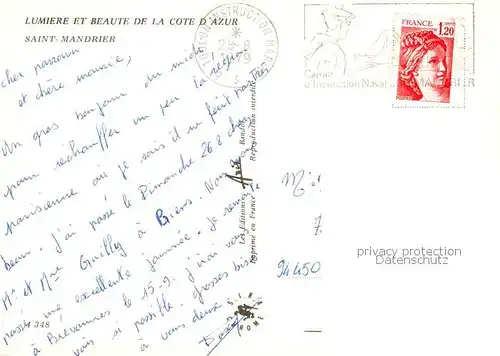 LUMIERE ET BEAUTE DE LA COTE D'AZUR
SAINT-MANDRIER
cher parrain
et chère marraine,
Un gros bonjour du midi
pour réchauffer un peu la région
parisienne où je sais il ne fait pas très
beau. J'ai passé le Dimanche 26 8 chez
Mr et Mme Guilly à Giens. Nous avons
passé une excellente journée. Je remonte
à Brévannes le 15.9. J'irai vous
voir si possible. grosses bises
à vous deux
A 348
Les Editions Aris Bandol
Imprimé en France Reproduction interdite
FRANCE
1,20
POSTES
Centre
d'Instruction Naval
MANDRIER
94450
privacy protection
Datenschutz